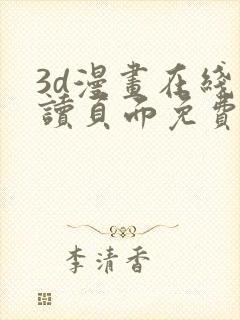 3d漫畫在綫
讀頁而免費
李清香